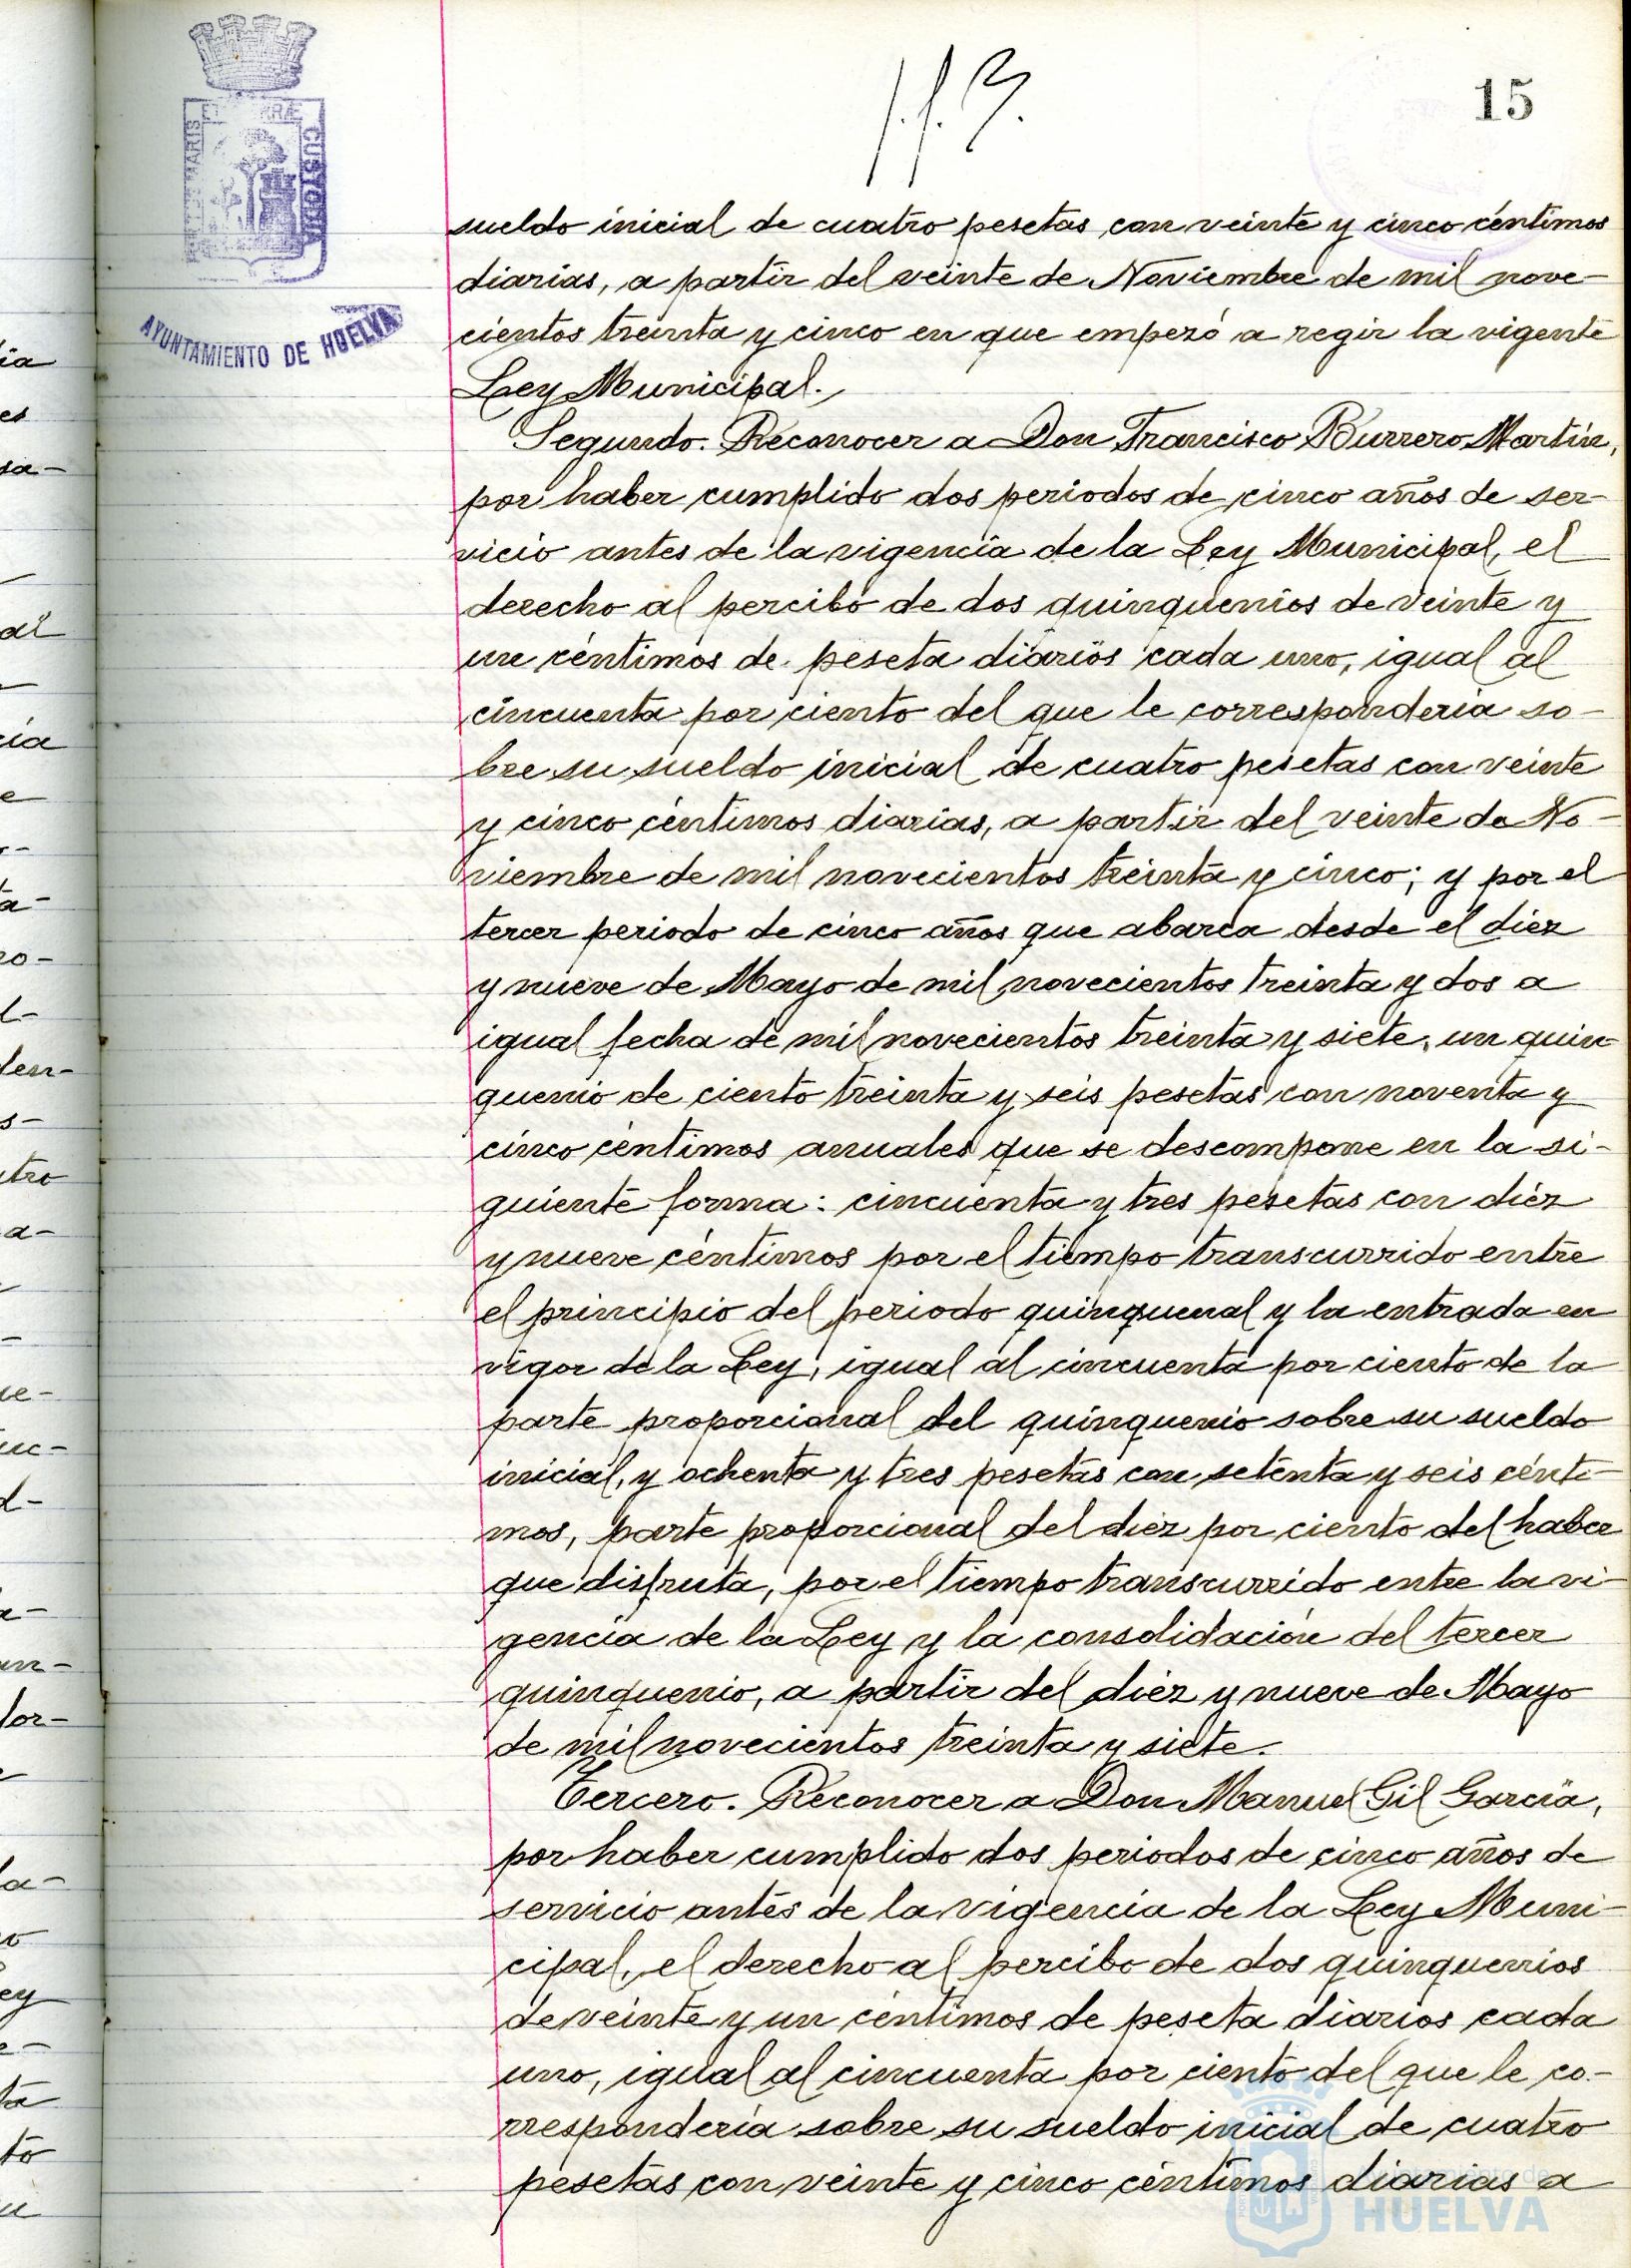 15
PORTUS MARIS ET TERRÆ CUSTODIA
AYUNTAMIENTO DE HUELVA
sueldo inicial de cuatro pesetas con veinte y cinco céntimos
diarias, a partir del veinte de Noviembre de mil nove-
cientos treinta y cinco en que empezó a regir la vigente
Ley Municipal.
Segundo. Reconocer a Don Francisco Burrero Martín,
por haber cumplido dos periodos de cinco años de ser-
vicio antes de la vigencia de la Ley Municipal, el
derecho al percibo de dos quinquenios de veinte y
un céntimos de peseta diarios cada uno, igual al
cincuenta por ciento del que le correspondería so-
bre su sueldo inicial de cuatro pesetas con veinte
y cinco céntimos diarias, a partir del veinte de No-
viembre de mil novecientos treinta y cinco; y por el
tercer periodo de cinco años que abarca desde el diez
y nueve de Mayo de mil novecientos treinta y dos a
igual fecha de mil novecientos treinta y siete, un quin-
quenio de ciento treinta y seis pesetas con noventa y
cinco céntimos anuales que se descompone en la si-
guiente forma: cincuenta y tres pesetas con diez
y nueve céntimos por el tiempo transcurrido entre
el principio del periodo quinquenal y la entrada en
vigor de la Ley, igual al cincuenta por ciento de la
parte proporcional del quinquenio sobre su sueldo
inicial, y ochenta y tres pesetas con setenta y seis cénti-
mos, parte proporcional del diez por ciento del haber
que disfruta, por el tiempo transcurrido entre la vi-
gencia de la Ley y la consolidación del tercer
quinquenio, a partir del diez y nueve de Mayo
de mil novecientos treinta y siete.
Tercero. Reconocer a Don Manuel Gil García,
por haber cumplido dos periodos de cinco años de
servicio antes de la vigencia de la Ley Muni-
cipal, el derecho al percibo de dos quinquenios
de veinte y un céntimos de peseta diarios cada
uno, igual al cincuenta por ciento del que le co-
rrespondería sobre su sueldo inicial de cuatro
pesetas con veinte y cinco céntimos diarias a
Ayuntamiento de
HUELVA